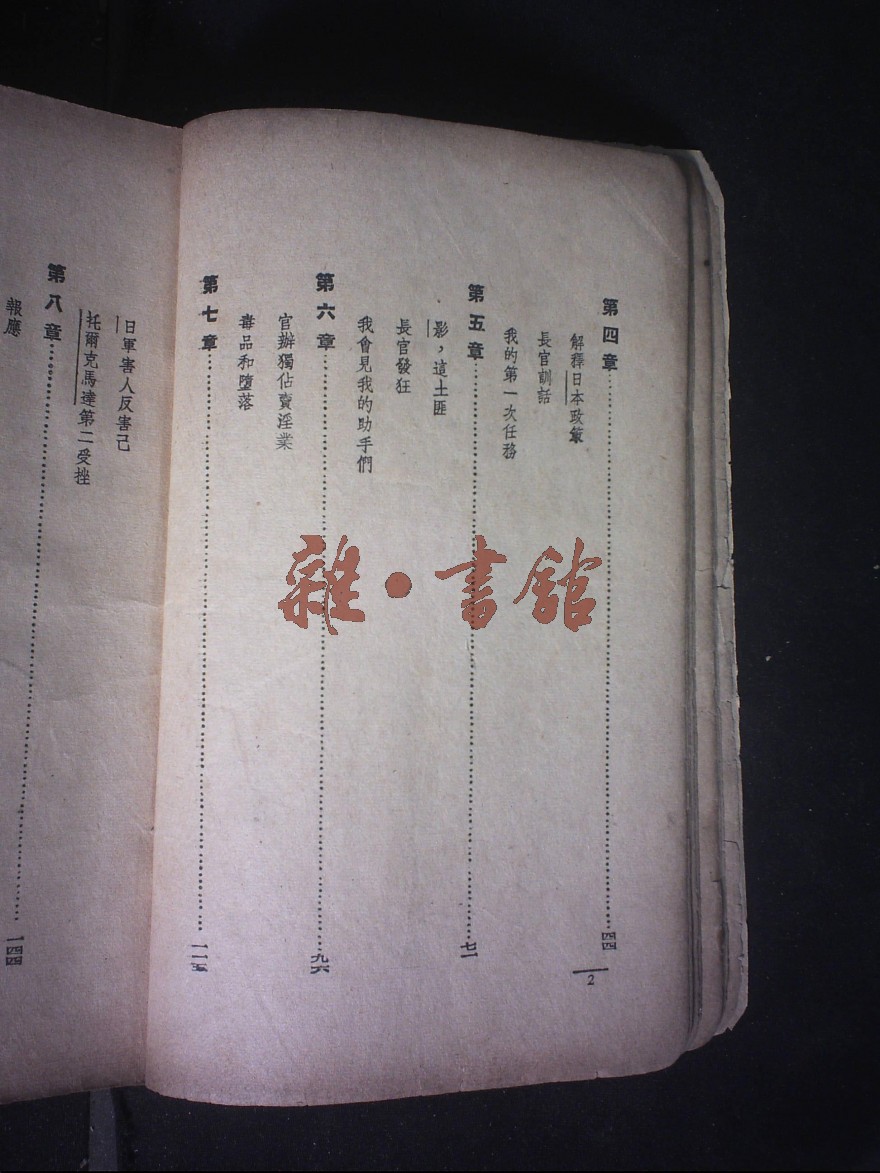 第四章……四四
解釋日本政策
長官訓話
我的第一次任務
第五章……七一
影，這土匪
長官發狂
我會見我的助手們
第六章……九六
官辦獨佔賣淫業
毒品和墮落
第七章……一一五
日軍害人反害己
托爾克馬達第二受挫
第八章……一四四
報應
2
雜·書館